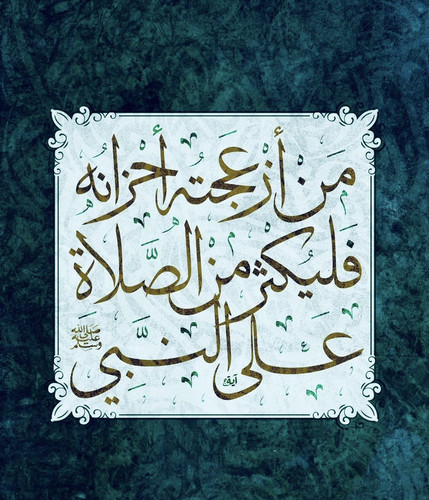 مَن أزعجته أحزانه
فَليُكثر من الصَّلاة
عَلى النَّبي ﷺ
آية